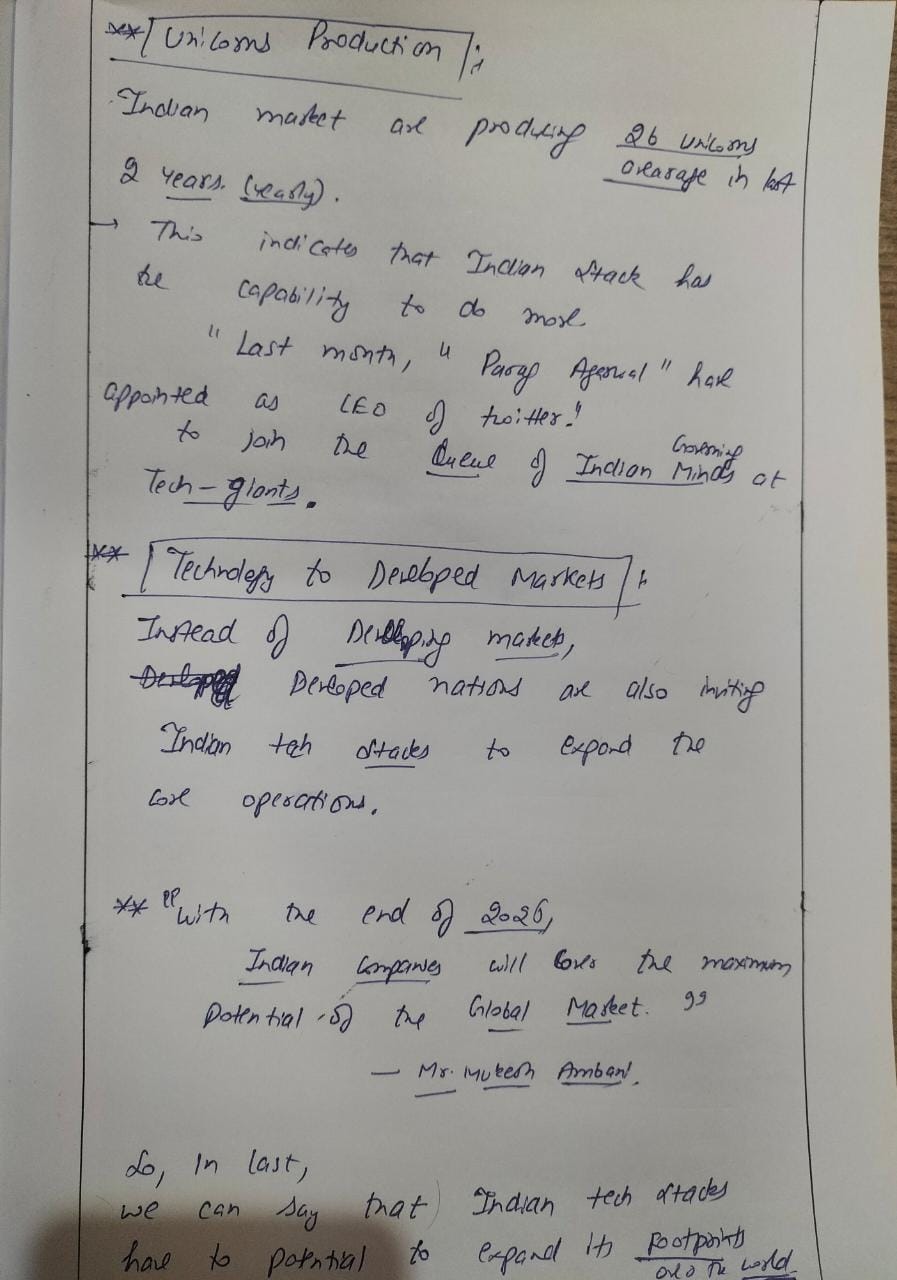 ** Unicorns Production :
Indian market are producing 26 unicorns
avearage in last
2 years. (yearly).
→ This indicates that Indian stack has
the capability to do more.
" Last month, " Parag Agarwal " have
appointed as CEO of twitter."
to join the Queue of Indian Governing Minds at
Tech-giants.
** Technology to Developed Markets :
Instead of Developing markets,
Developed nations are also inviting
Indian teh stacks to expand the
core operations.
** "With the end of 2026,
Indian Companies will cover the maximum
Potential of the Global Market. "
— Mr. Mukesh Ambani.
So, In last,
we can say that Indian tech stacks
have to potential to expand its footprints
over the world